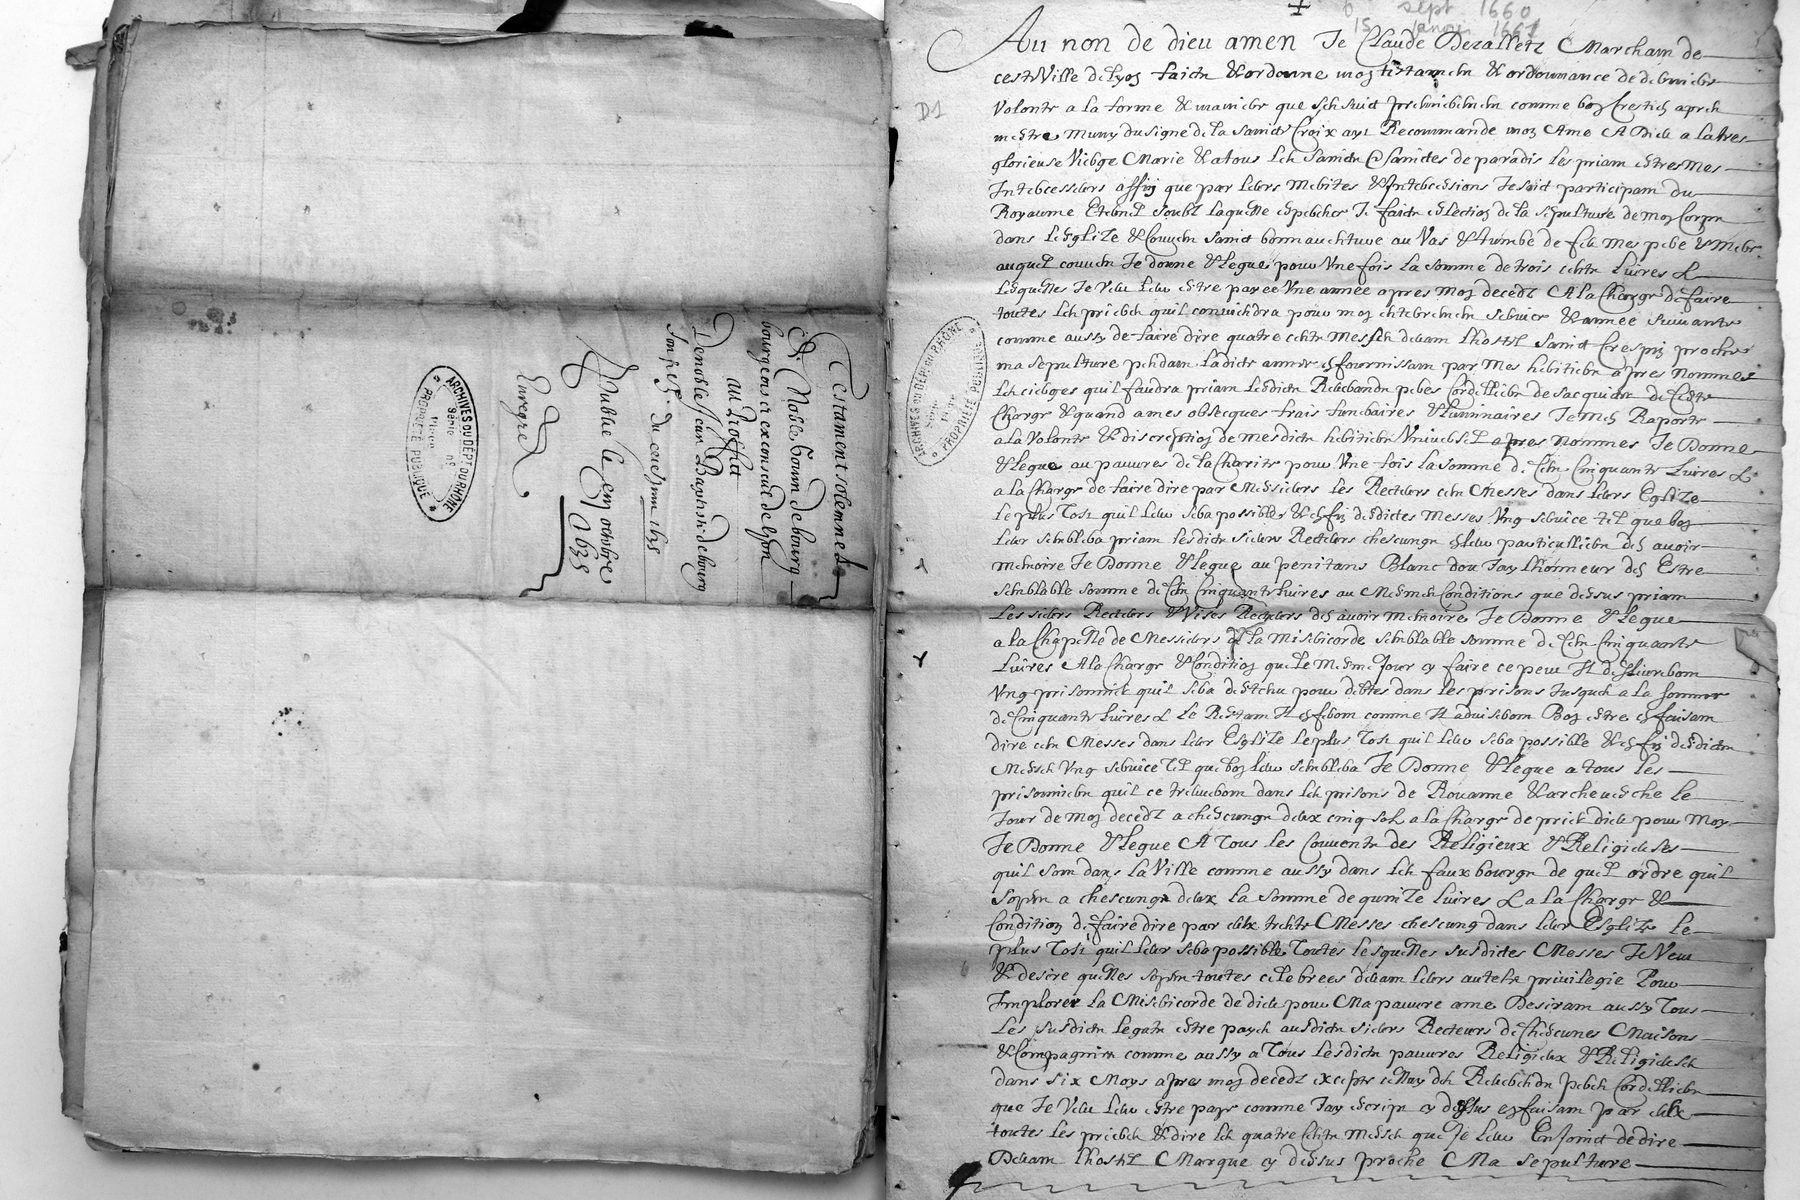 Testament solemnel
de Noble
bourgeois et exconsul de lyon
au Proffict
De noble Jean Baptiste debourg
son filz du
Publie le en octobre
1635
Enregre
ARCHIVES DU DÉPT DU RHÔNE
Série no
Pièce
PROPRIÉTÉ PUBLIQUE
6 sept 1660
15 janvi 1661
D1
ARCHIVES DU DÉPT DU RHÔNE
Série
Pièce
PROPRIÉTÉ PUBLIQUE
Au non de dieu amen Je Claude Dezalletz Marchant de
ceste Ville de Lyon faictz & ordonne mon testament & ordonnance de derniere
volonte a la forme & maniere que sensuict premierement comme bon Crestien apres
mestre muny du signe de la saincte Croix aye Recommande mon Ame A Dieu a la tres
glorieuse Vierge Marie & a tous les sainctz & sainctes de paradis les priant estre mes
Intercesseurs affin que par leurs merites & Intercessions Je soict participant du
Royaume Eternel soubz laquelle esperance Je faictz eslection de la sepulture de mon Corps
dans lesglize & Couvent sainct bonnauenture au Vas & tumbe de feu mes pere & mere
auquel couvent Je donne & legue pour Vne fois la somme de trois centz Liures L
Lesquelles Je veu leur estre payee Vne annee apres mon decedz A la Charge de faire
toutes les prieres quil conviendra pour mon enterrement service & annee suivante
comme aussy de faire dire quatre centz Messes deuant lhostel sainct Crespin proche
ma sepulture pendant Ladicte annee en fournissant par mes heritiers apres nommes
les cierges quil faudra priant lesdictz Reverandz peres Cordelliers de sacquicter de ceste
Charge & quand a mes obseques frais funeraires & luminaires Je men Raporte
a la volonte & discreption de mesdictz heritiers Vniuersel apres nommes Je Donne
& legue au pauvres de la Charite pour Vne fois la somme de Cent Cinquante Liures L
a la Charge de faire dire par Messieurs les Recteurs cent Messes dans leurs Eglize
le plus tost quil leur sera possible & en fin desdictes messes Vng service tel que bon
leur semblera priant lesdictz sieurs Recteurs chescung en leur particullier den avoir
memoire Je Donne & legue au penitans Blanc dou Jay lhonneur den Estre
semblable somme de Cent Cinquante liures au mesmes Conditions que dessus priant
Les sieurs Recteurs & Vises Recteurs den avoir memoire Je Donne & legue
a la Chapelle de Messieurs de la Misericorde semblable somme de Cent Cinquante
Liures A la Charge & Condition que le mesme Jour cy faire ce peut Il deslivreront
Vng prisonnier quil sera destenu pour debtes dans les prisons Jusques a la somme
de Cinquante Liures L Le Restant Il en feront comme Il aduiseront Bon estre en faisant
dire cent Messes dans leur Esglize le plus tost quil leur sera possible & en fin desdictz
Messes Vng service tel que bon leur semblera Je Donne & legue a tous les
prisonniers quil ce treuveront dans les prisons de Rouanne & archeuesche le
Jour de mon decedz a chescungz deux cinq solz a la Charge de prier dieu pour moy
Je Donne & legue A tous les Couventz des Religieux & Religieuses
quil sont dans la Ville comme aussy dans les fauxbourgz de quel ordre quil
soyent a chescungz deux la somme de quinze Liures L a la Charge &
Condition de faire dire par deux trente Messes chescung dans leur Esglize le
plus tost quil leur sera possible Toutes lesquelles susdictes Messes Je Veut
& desire quelles soyent toutes celebrees deuant leurs autelz privilegie Pour
Implorer la Misericorde de dieu pour Ma pauvre ame Desirant aussy Tous
les susdictz legatz estre payes ausdictz sieurs Recteurs de Chescunes Maisons
& Compagnies comme aussy a Tous lesdictz pauvres Religieux & Religieuses
dans six Moys apres mon decedz excepte celluy des Reverendz Peres Cordelliers
que Je Veu leur estre paye comme Jay escript cy dessus en faisant par eulx
toutes les prieres & dire les quatre Centz messes que Je leur Enjoinct de dire
Deuant lhostel Marque cy dessus proche Ma sepulture